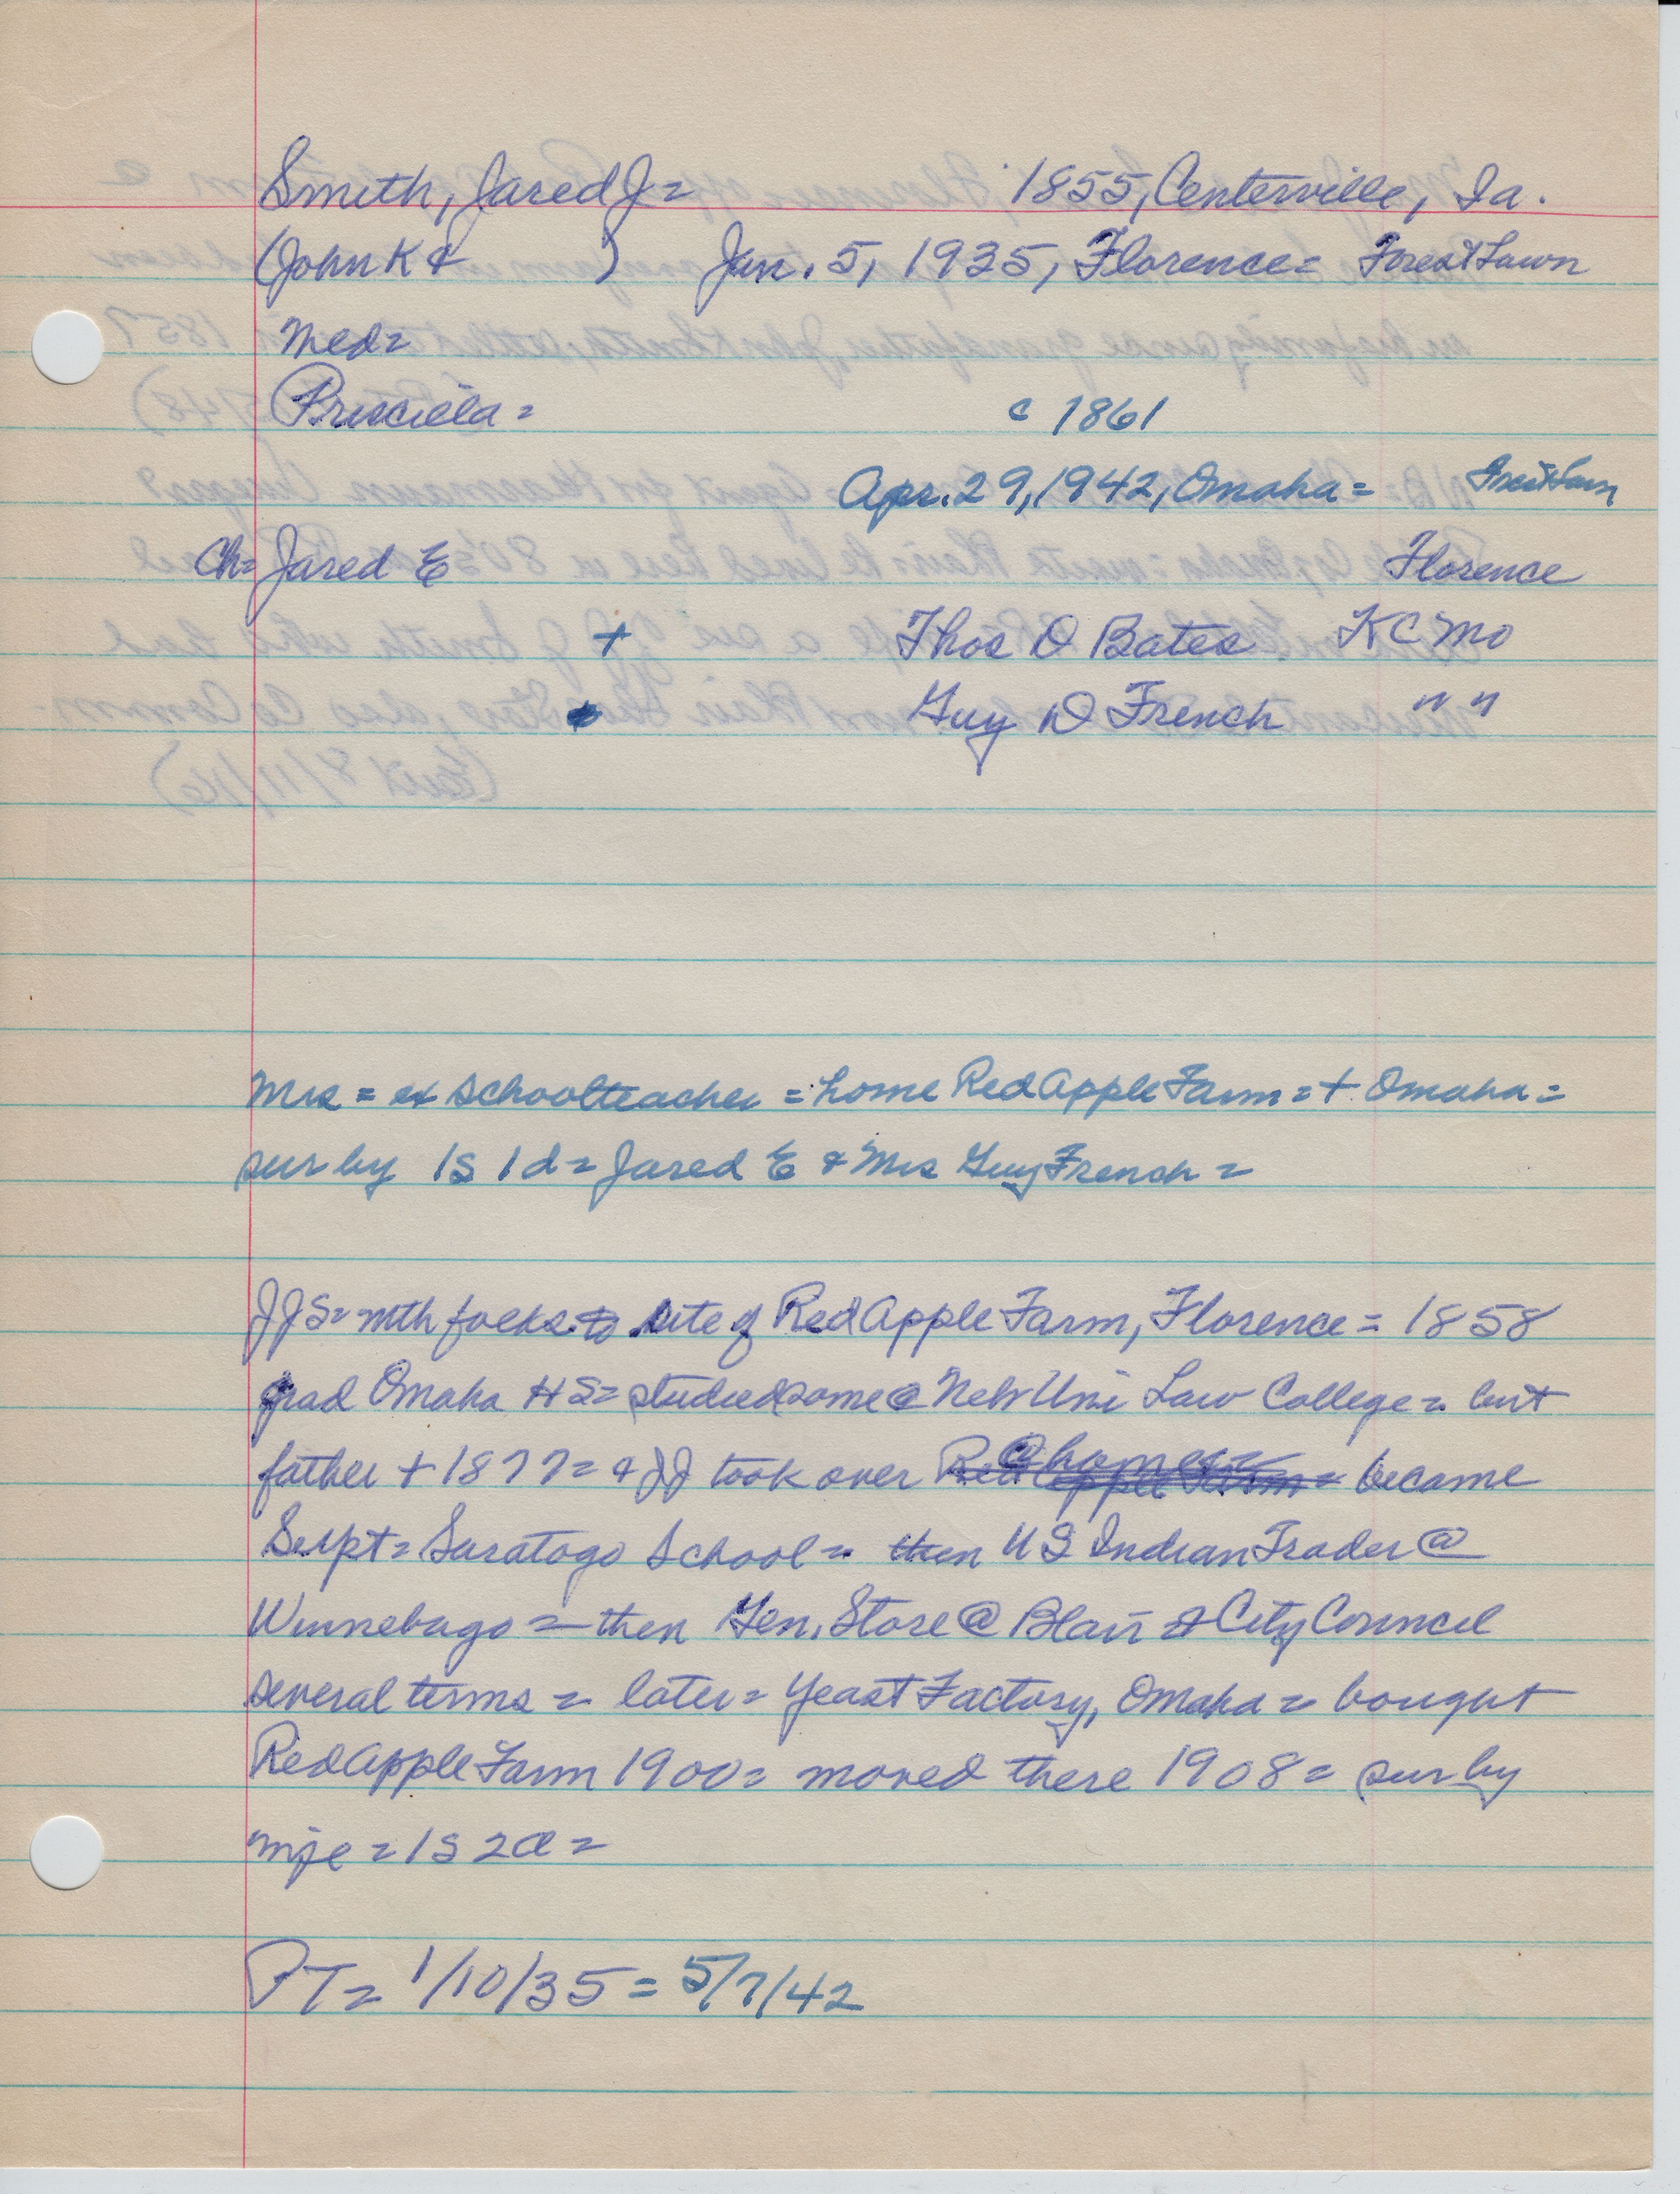 Smith, Jared J = 1855, Centerville, Ia.
(John K & ) Jan. 5, 1935, Florence = Forest Lawn
Med=
Priscilla = c 1861
Apr. 29, 1942, Omaha = Forest Lawn
Ch= Jared E Florence
+ Thos D Bates KC Mo
Guy D French " "
Mrs = ex schoolteacher = home Red Apple Farm = + Omaha =
sur by 1s 1d = Jared E & Mrs Guy French =
JJS = wth folks to site of Red Apple Farm, Florence = 1858
grad Omaha HS = studied some @ Neb Uni Law College = but
father + 1877 = & JJ took over @ home = became
Supt = Saratoga School = then US Indian Trader @
Winnebago = then Gen. Store @ Blair & City Council
several terms = later = Yeast Factory, Omaha = bought
Red Apple Farm 1900 = moved there 1908 = sur by
wife = 1s 2d =
PT = 1/10/35 = 5/7/42